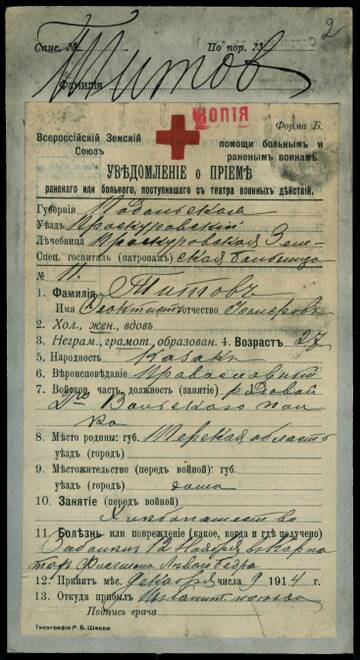 2
Спис. № По пор. №
Титов
Фамилія
КОПІЯ
Форма Б.
Всероссійскій Земскій Союзъ
помощи больнымъ и раненымъ воинамъ
УВѢДОМЛЕНІЕ о ПРІЕМѢ
раненаго или больного, поступившаго съ театра военныхъ дѣйствій.
Губернія Подольская
Уѣздъ Проскуровскій
Лѣчебница Проскуровская Зем-
Спец. госпиталь (патронаж.) ская больница
№
1. Фамилія Титовъ
Имя Феоктистъ отчество
2. Хол., жен., вдовъ
3. Неграм., грамот., образован. 4. Возрастъ 27
5. Народность Казакъ
6. Вѣроисповѣданіе Православный
7. Войсков. часть, должность (занятіе) рядовой
2го Волгского пол
ка
8. Мѣсто родины: губ. Терская область
уѣздъ (городъ)
9. Мѣстожительство (передъ войной): губ.
уѣздъ (городъ) дома
10. Занятіе (передъ войной)
Хлѣбопашество
11. Болѣзнь или поврежденіе (какое, когда и гдѣ получено)
12 Ноября Карпа
тах лѣваго бедра
12. Принятъ мѣс. декабря числа 9 1914
13. Откуда прибылъ
Подпись врача
Типографія Р. Б. Шерра